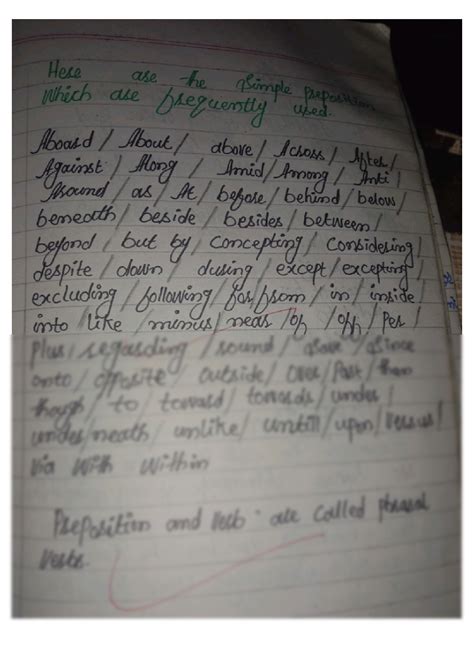 Here are the simple preposition
which are frequently used.
Aboard / About / above / Across / After /
Against / Along / Amid / Among / Anti /
Around / as / At / before / behind / below /
beneath / beside / besides / between /
beyond / but by / Concepting / Considering /
despite / down / during / except / excepting /
excluding / following / for / from / in / inside /
into / like / minus / near / of / off / Per /
Plus / regarding / round / save / since
onto / opposite / outside / over / Past / than
though / to / toward / towards / under /
under/neath / unlike / untill / upon / versus /
via with within
Preposition and verb are called phrasal
verbs.